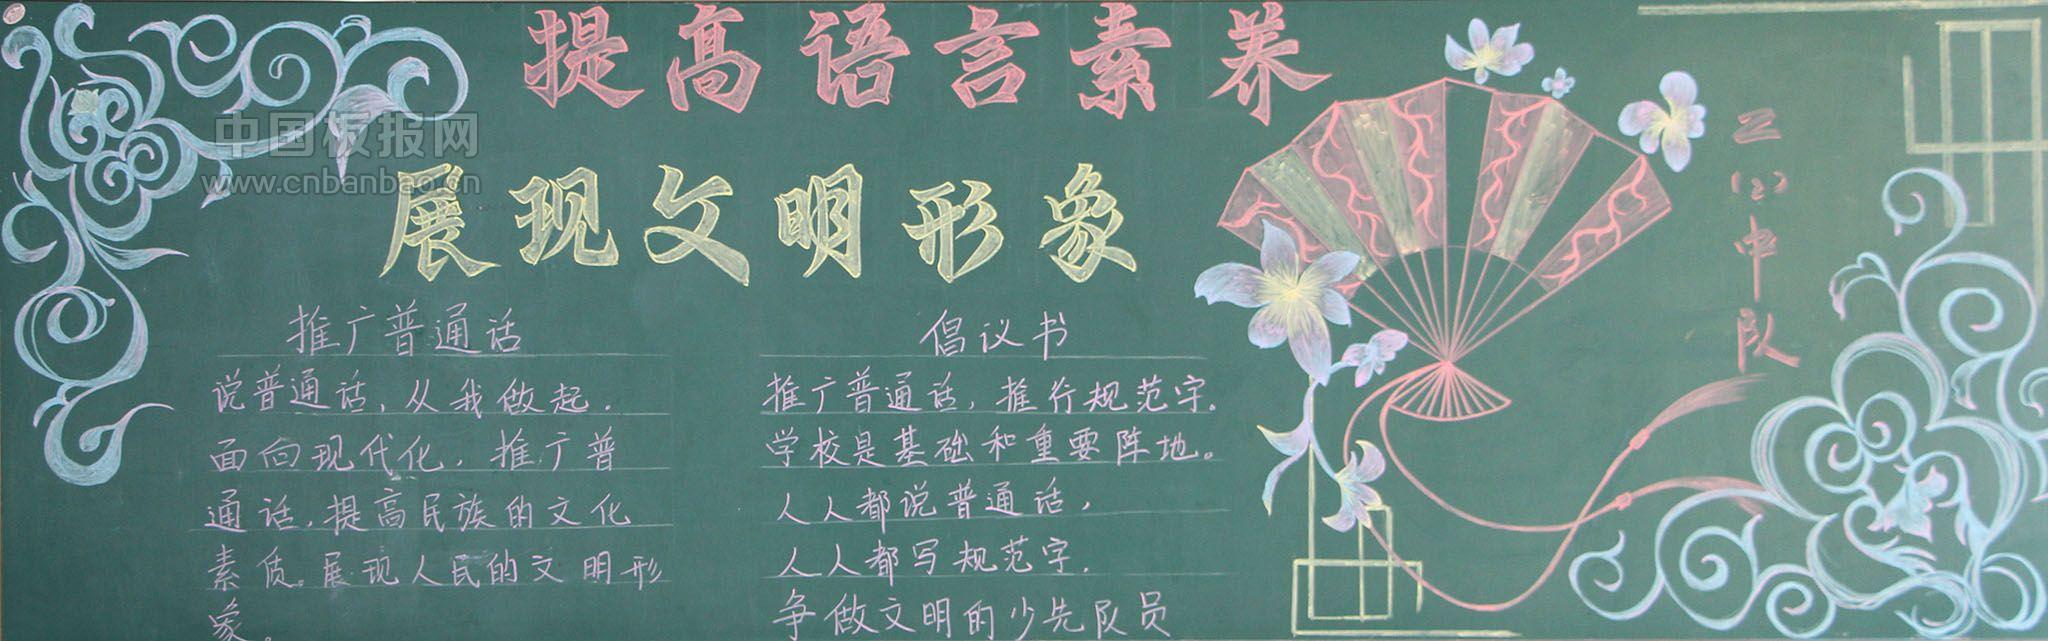 提高语言素养
展现文明形象
中国板报网
www.cnbanbao.cn
推广普通话
说普通话，从我做起.
面向现代化，推广普
通话，提高民族的文化
素质。展现人民的文明形
象。
倡议书
推广普通话，推行规范字.
学校是基础和重要阵地。
人人都说普通话，
人人都写规范字.
争做文明的少先队员
二(2)中队